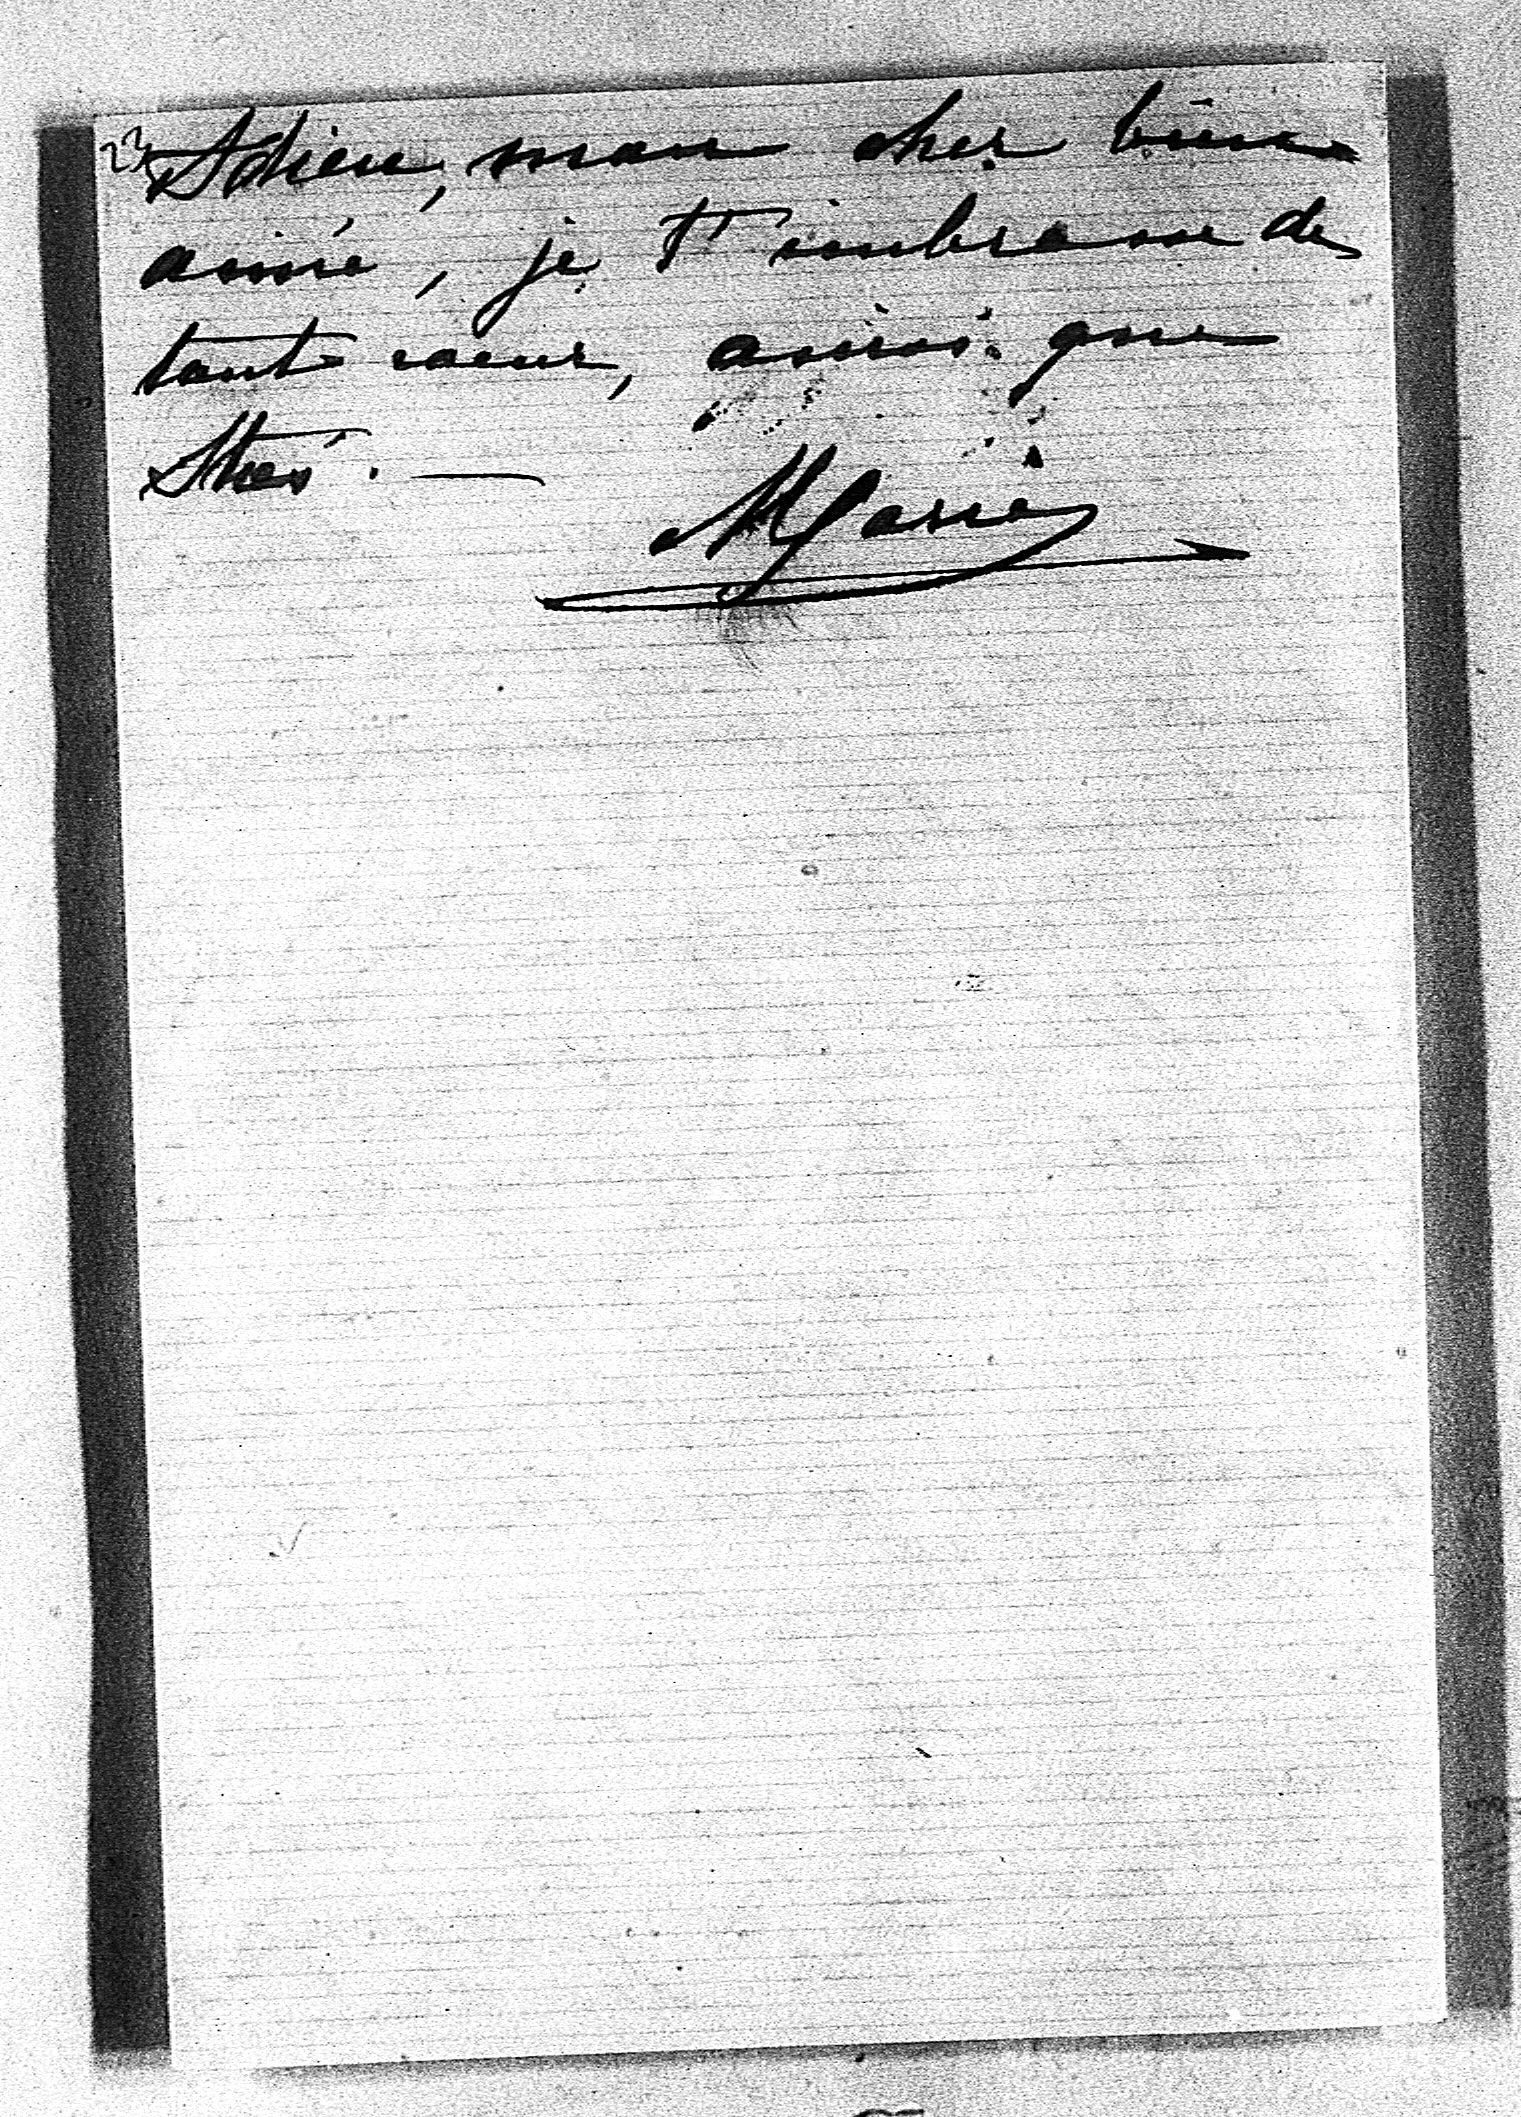 23
Adieu, mon cher bien
aimé, je t'embrasse de
tout coeur, ainsi que